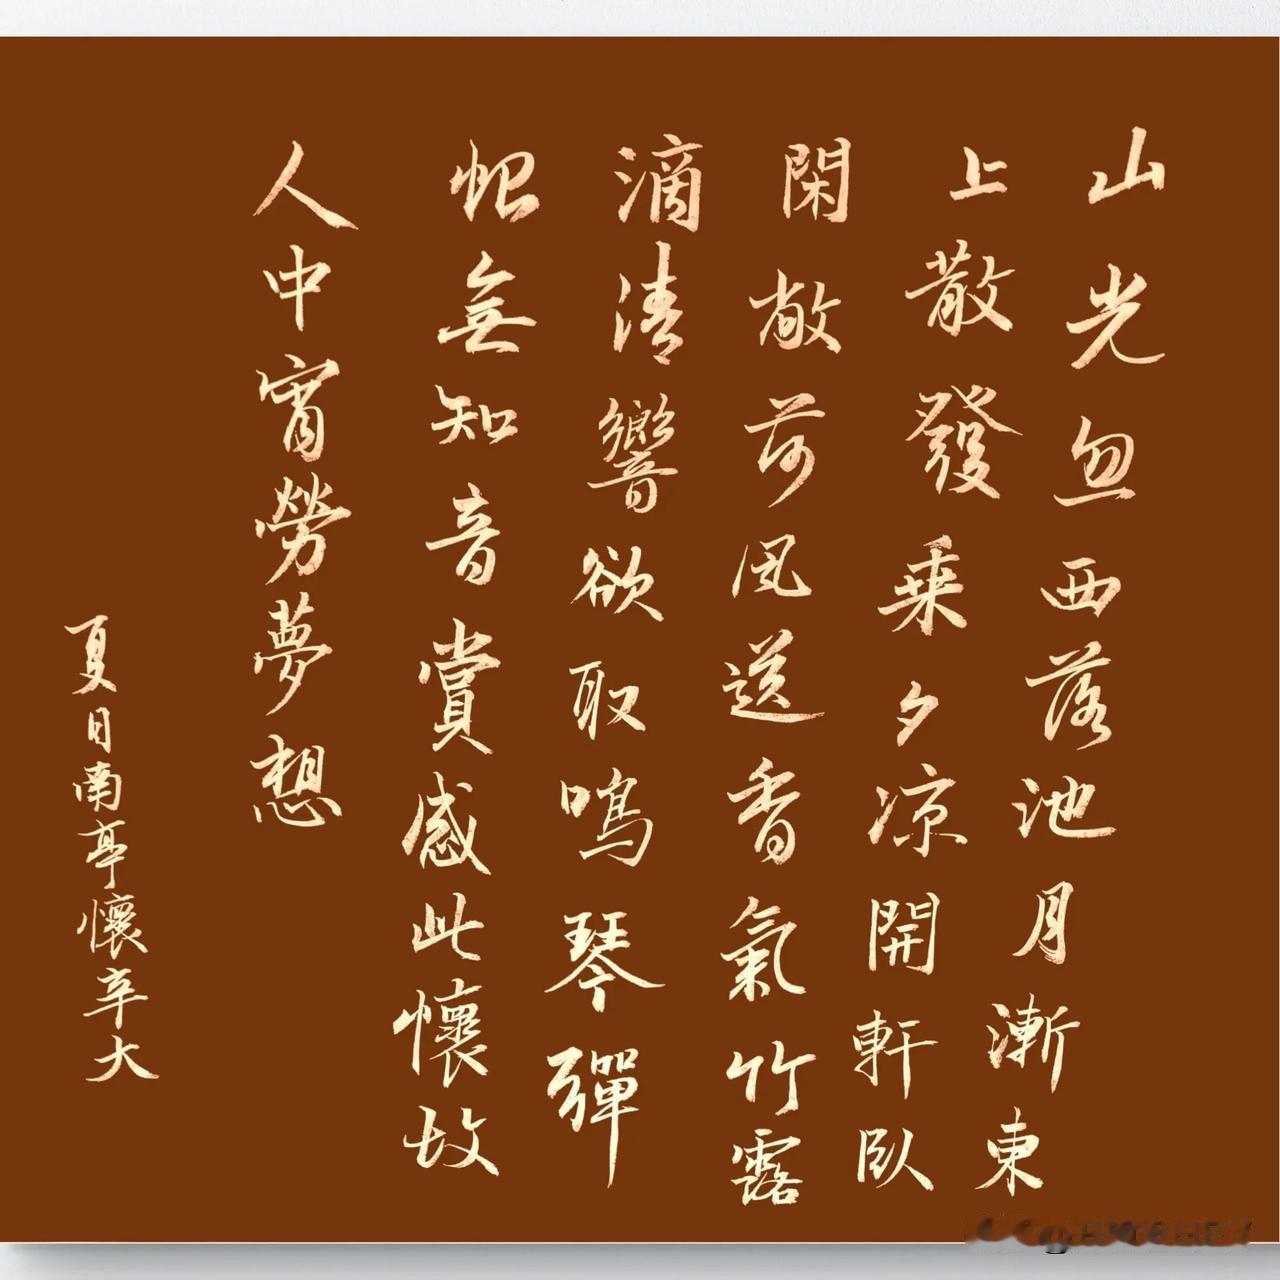 山光忽西落池月漸東
上散發乗夕凉開軒臥
閑敞荷风送香氣竹露
滴清響欲取鳴琴彈
恨無知音賞感此懷故
人中宵勞夢想
夏日南亭懷辛大